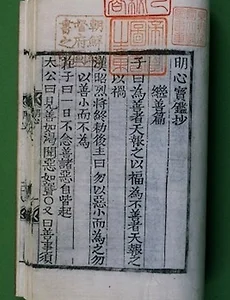 明心寶鑑抄
繼善篇
子曰為善者天報之以福為不善者天報之
以禍
漢昭烈將終勅後主曰勿以惡小而為之勿
以善小而不為
莊子曰一日不念善諸惡自皆起
太公曰見善如渴聞惡如聾○又曰善事須
朝鮮總
督府圖
書之印